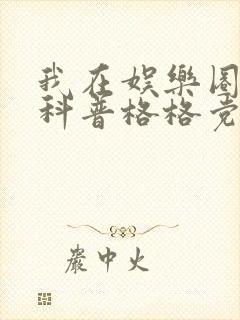 我在娱樂圈
科普格格党
嚴中火